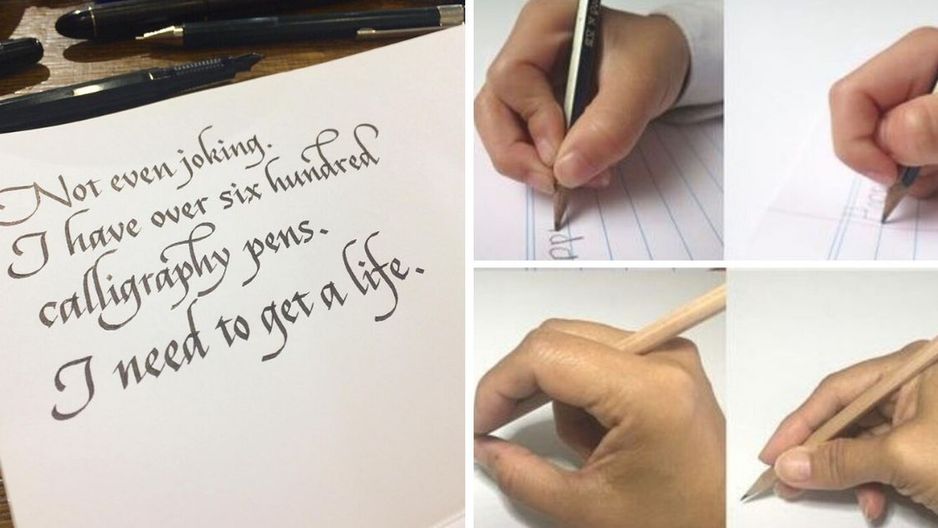 Not even joking.
I have over six hundred
calligraphy pens.
I need to get a life.